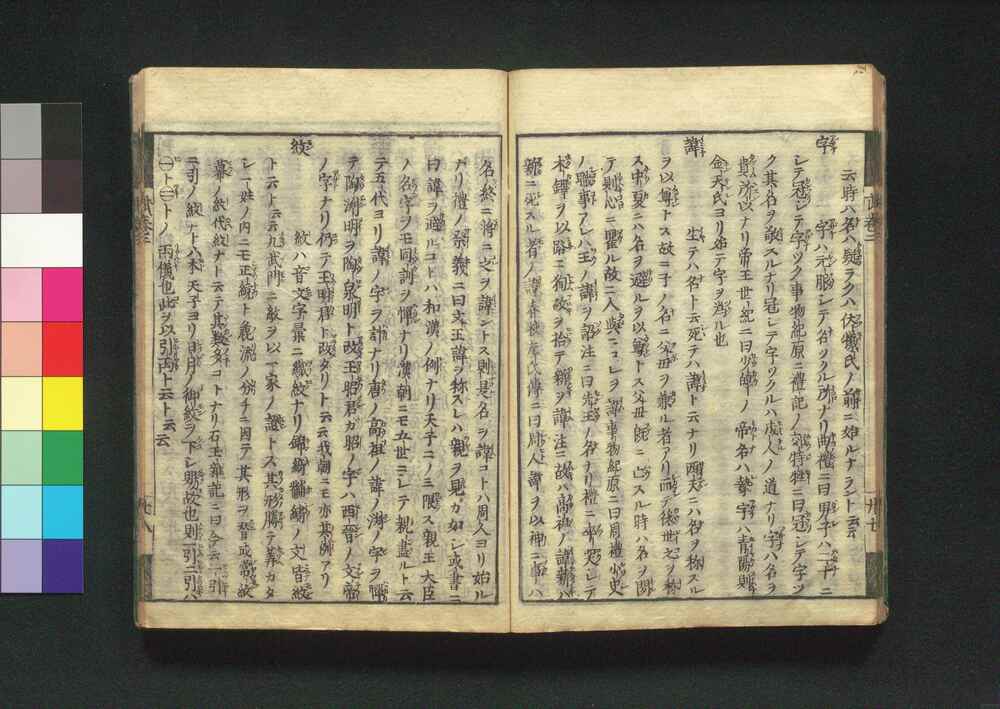 云時ハ名ハ疑ラクハ伏犧氏ノ前ニ始ルナラント云云
字
字ハ元服シテ付クル所ナリ曲禮ニ曰男子ハ二十ニ
シテ冠シテ字ツク事物紀原ニ禮記ノ郊特牲ニ曰冠シテ字ツ
ク其名ヲ敬スルナリ冠シテ字ツクルハ成人ノ道ナリ字ハ名ヲ
ナリ帝王世紀ニ曰少皥ノ帝名ハ摯字ハ青陽則
金天氏ヨリ始テ字ヲ為ル也
諱
生テハ名ト云死テハ諱ト云ナリ西夫ニハ名ヲ称スル
ヲ以尊トス故ニ子ノ名ニ父母ヲ
ス中夏ニハ名ヲ避ルヲ以尊トス父母既ニ亡スル時ハ名ヲ聞
テ則心ニ瞿ル故ニ人與ニコレヲ諱事物紀原ニ曰周禮小史
ノ職事アレハ王ノ諱ヲ詔注ニ曰先王ノ名ナリ禮ニ卒哭シテ
木鐸ヲ以路ニ徇故ヲ捨テ新ヲ諱注ニ故ハ高祖ノ諱
ニ曰周人諱ヲ以神ニ事ハ
名終ニ將ニ之ヲ諱ントス則是名ヲ諱コトハ周人ヨリ始ル
ナリ禮ノ祭義ニ曰文王諱ヲ称スレハ親ヲ見カ如シ或書ニ
曰諱ヲ避ルコトハ和漢ノ例ナリ天子ニノミ限ス親王大臣
ノ名字ヲモ同訓ヲ憚ナリ漢朝ニモ五世ニシテ親盡ルト云
テ五代ヨリ諱ノ字ヲ許ナリ唐ノ高祖ノ諱ノ淵ノ字ヲ憚
テ陶淵明ヲ陶泉明ト改王昭君カ昭ノ字ハ西晉ノ文帝
ノ字ナリ仍テ王明君ト改タリト云云我朝ニモ亦其例アリ
紋
紋ハ音文字彙ニ織紋ナリ錦繡黼繡ノ文皆紋
ト云ト云云凡武門ニ敵ヲ以一家ノ證トス其形勝テ算カタ
シ一姓ノ内ニモ正統ト庶流ノ分チニ因テ其形ヲ替或常紋
幕ノ紋代紋ナト云テ其數多コトナリ石玉雜記ニ曰今云一引
ニ引ノ紋ナトハ本天子ヨリ日月ノ御紋ヲ下シ賜故也則一引二引ハ
㊀ト㊁トノ両儀也此ヲ以引両ト云ト云云